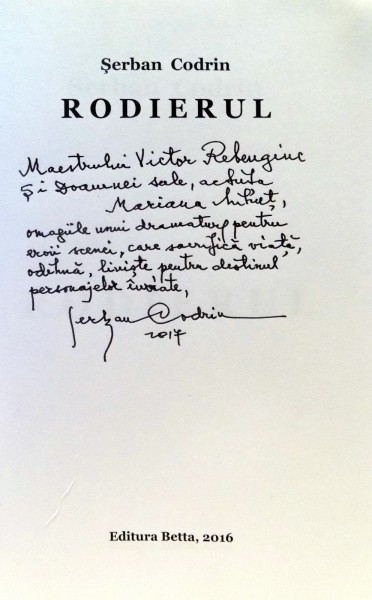 Şerban Codrin
RODIERUL
Maestrului Victor Rebenginc
Şi Doamnei sale, actriţa
Mariana Mihuţ,
omagiile unui dramaturg pentru
eroii scenei, care sacrifică viaţă,
odihnă, linişte pentru destinul
personajelor înviate,
Şerban Codrin
2017
Editura Betta, 2016